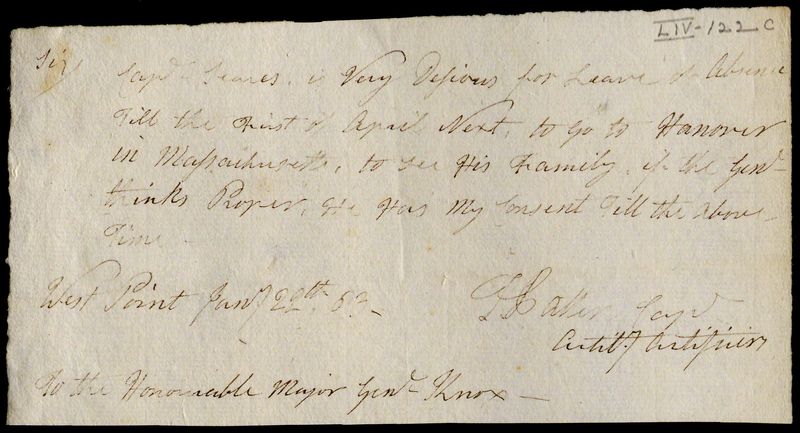 LIV-122 C
Sir
Capt. Seares, is Very Desious for Leave of Absence
Till the First of April Next, to Go to Hanover
in Massachusetts, to see His Family, if the Genl
thinks Proper, He Has My Consent Till the above
Time
West Point Jany 22th, 83
Capt
Artily Artificiers
To the Honourable Major Genl Knox